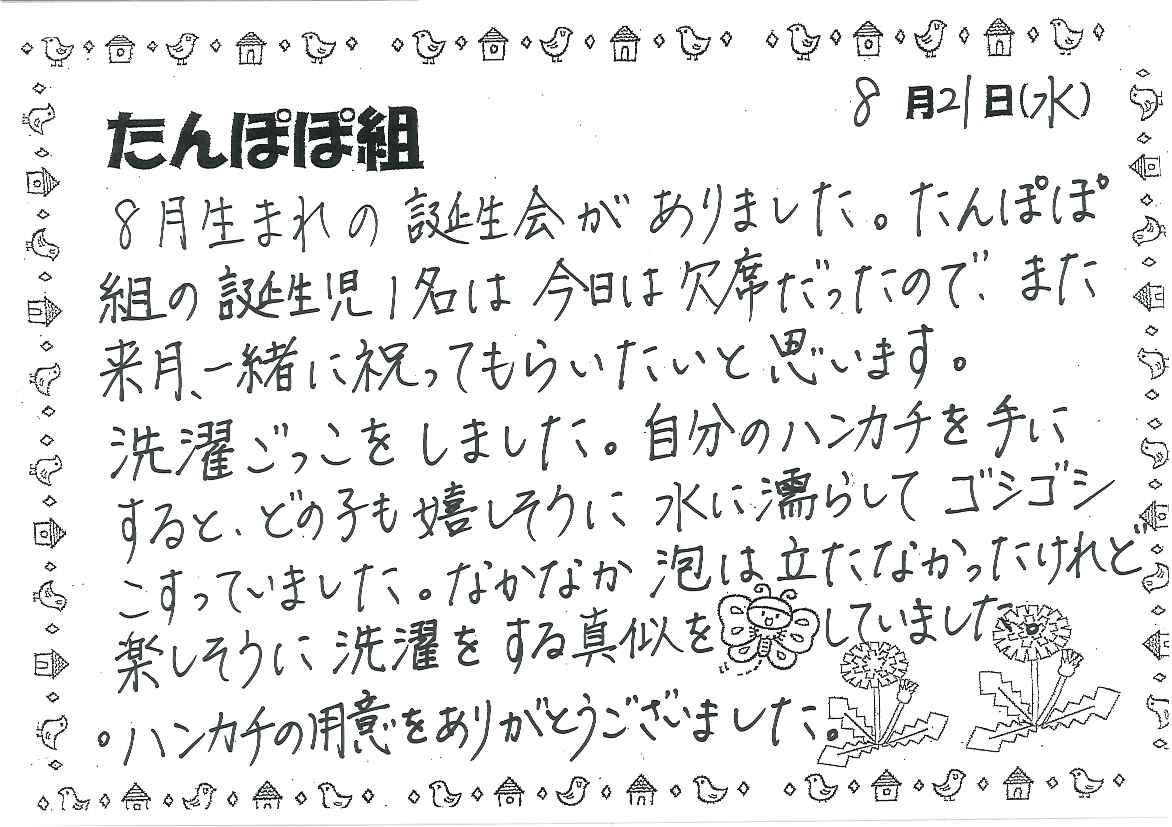 8月21日(水)
たんぽぽ組
8月生まれの誕生会がありました。たんぽぽ
組の誕生児1名は今日は欠席だったので、また
来月、一緒に祝ってもらいたいと思います。
洗濯ごっこをしました。自分のハンカチを手に
すると、どの子も嬉しそうに水に濡らしてゴシゴシ
こすっていました。なかなか泡は立たなかったけれど
楽しそうに洗濯をする真似をしていました。
。ハンカチの用意をありがとうございました。